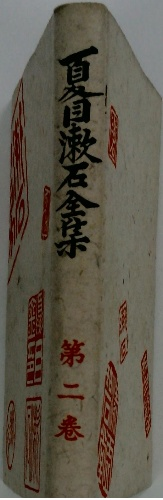 夏目漱石全集
第二巻